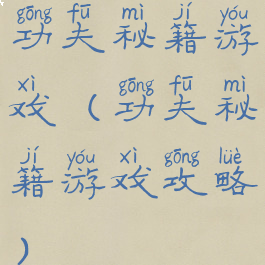 gōng fū mì jí yóu
功夫秘籍游
xì gōng fū mì
戏(功夫秘
jí yóu xì gōng lüè
籍游戏攻略
)